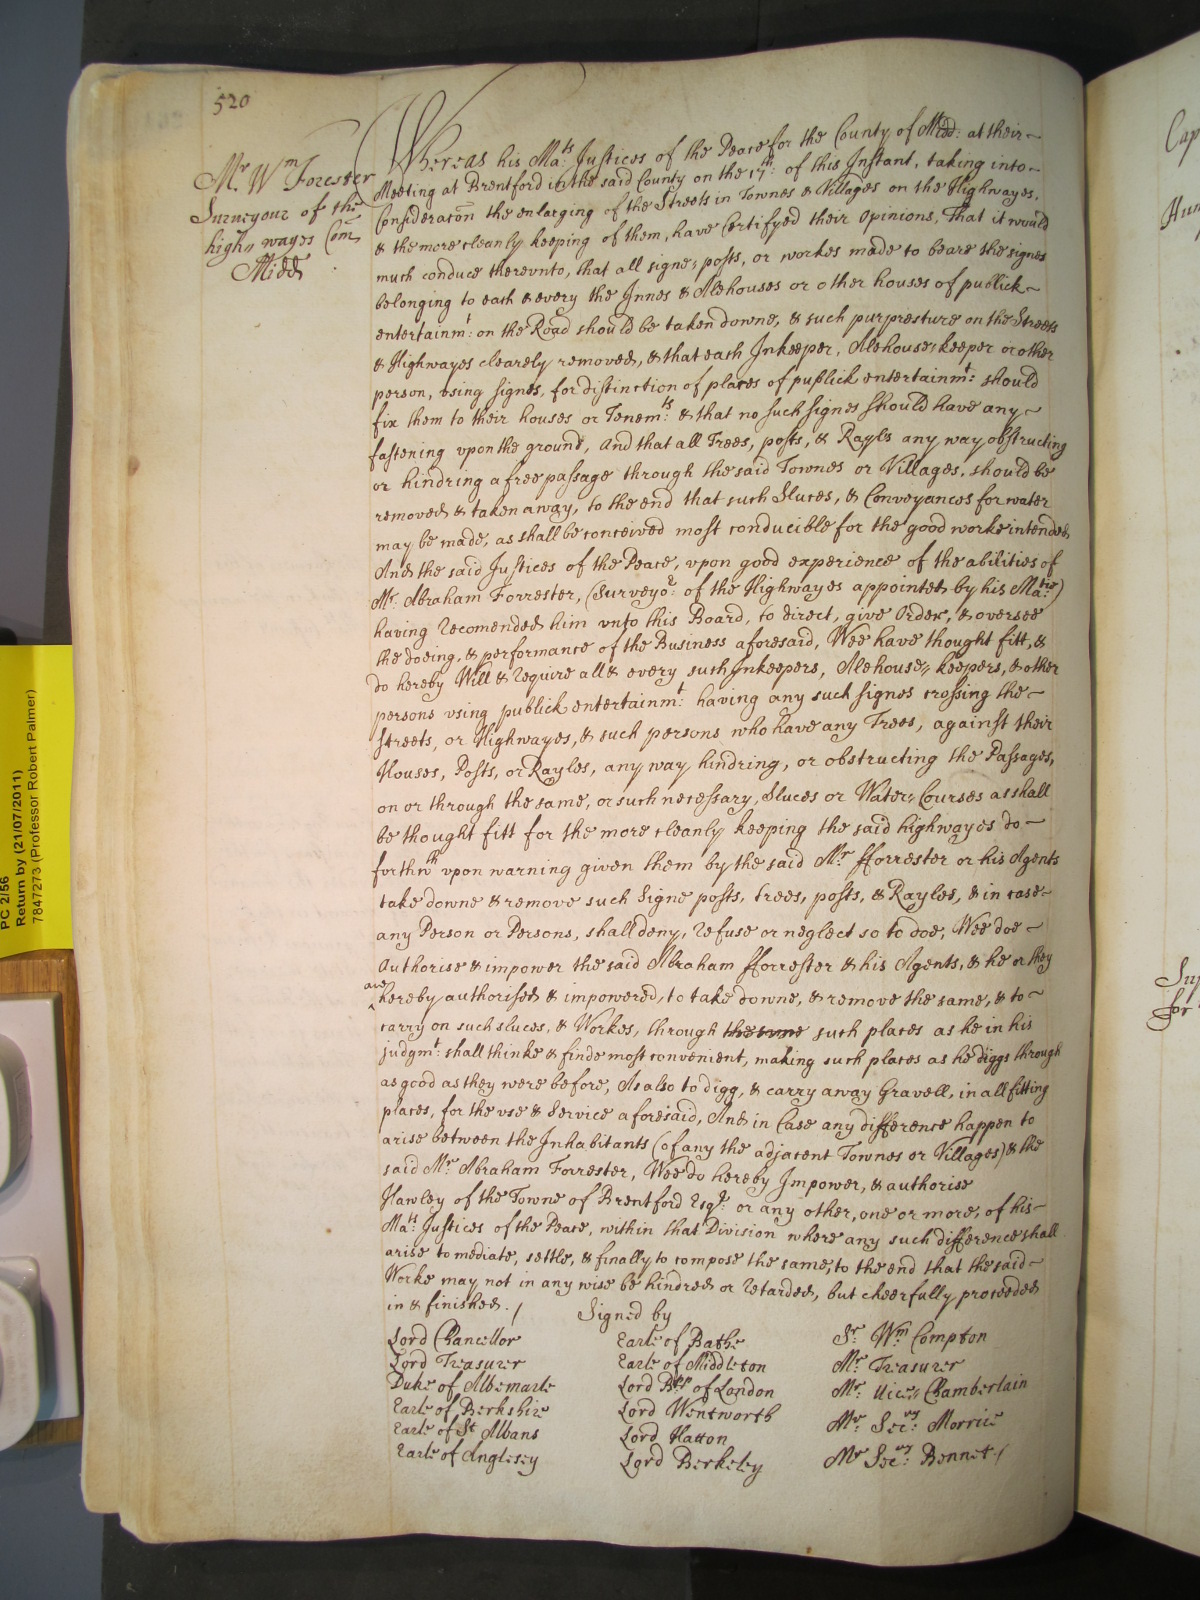 520
Mr. Wm Forester
Surveyour of the
high wayes Com̄
Midd
Whereas his Mats: Justices of the Peace for the County of Midd: at their
Meeting at Brentford in the said County on the 17th: of this Instant, taking into
Consideratōn the enlarging of the Streets in Townes & Villages on the Highwayes,
& the more cleanly keeping of them, have Certifyed their Opinions, That it would
much conduce therevnto, that all signe, posts, or workes made to beare the signes
belonging to each & every the Innes & Alehouses or other houses of publick
entertainmt: on the Road should be taken downe, & such purpresture on the Streets
& Highwayes clearely removed, & that each Inkeeper, Alehouse,keeper or other
person, vsing signes, for distinction of places of publick entertainmt: should
fix them to their houses or Tenemts: & that no such signes should have any
fastening vpon the ground, And that all Trees, posts, & Rayls any way obstructing
or hindring a free passage through the said Townes or Villages, should be
removed & taken away, to the end that such Sluces, & Conveyances for water
may be made, as shall be conceived most conducible for the good worke intended
And the said Justices of the Peace, vpon good experience of the abilities of
Mr. Abraham Forrester, (Surveyor: of the Highwayes appointed by his Matie:)
having Recomended him vnto this Board, to direct, give Order, & oversee
the doeing, & performance of the Business aforesaid, Wee have thought fitt, &
do hereby Will & Require all & every such Inkeepers, Alehouse,, keepers, & other
persons vsing publick entertainmt: having any such signes crossing the
streets, or Highwayes, & such persons who have any Trees, against their
Houses, Posts, or Rayles, any way hindring, or obstructing the Passages,
on or through the same, or such necessary, Sluces or Water,, Courses as shall
be thought fitt for the more cleanly keeping the said highwayes do
forthwth vpon warning given them by the said Mr. fforrester or his Agents
take downe & remove such Signe posts, trees, posts, & Rayles, & in case
any Person or Persons, shall deny, Refuse or neglect so to doe, Wee doe
Authorise & impower the said Abraham fforrester & his Agents, & he or they
are
hereby authorised & impowered, to take downe, & remove the same, & to
carry on such sluces, & Workes, through the same such places as he in his
judgmt: shall thinke & finde most convenient, making such places as he diggs through
as good as they were before, As also to digg, & carry away Gravell, in all fitting
places, for the vse & Service aforesaid, And in Case any difference happen to
arise between the Inhabitants (of any the adjacent Townes or Villages) & the
said Mr. Abraham Forrester, Wee do hereby Impower, & authorise
Hawley of the Towne of Brentford Esqr: or any other, one or more, of his
Mats: Justices of the Peace, within that Division where any such difference shall
arise to mediate, settle, & finally to compose the same, to the end that the said
Worke may not in any wise be hindred or Retarded, but cheerfully proceeded
in & finished. /
Signed by
Lord Chancellor
Lord Treasurer
Duke of Albemarle
Earle of Berkshire
Earle of St Albans
Earle of Anglesey
Earle of Bathe
Earle of Middleton
Lord Bpp: of London
Lord Wentworth
Lord Hatton
Lord Berkeley
Sr. Wm. Compton
Mr. Treasurer
Mr. Vice,, Chamberlain
Mr. Secry: Morrice
Mr Secry: Bennet /
PC 2/56
Return by (21/07/2011)
7847273 (Professor Robert Palmer)
Cap
for